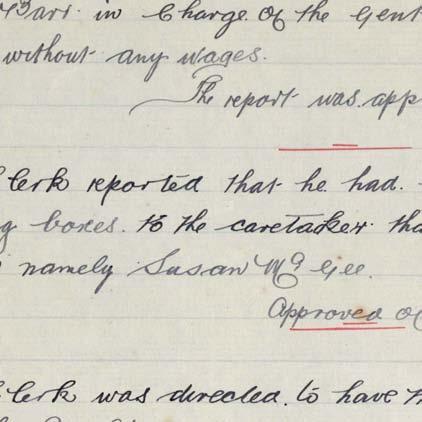 Barr in Charge of the Gent
without any wages.
The report was app
lerk reported that he had
g boxes to the caretaker tha
namely Susan Mc Gee.
Approved of
lerk was directed to have th